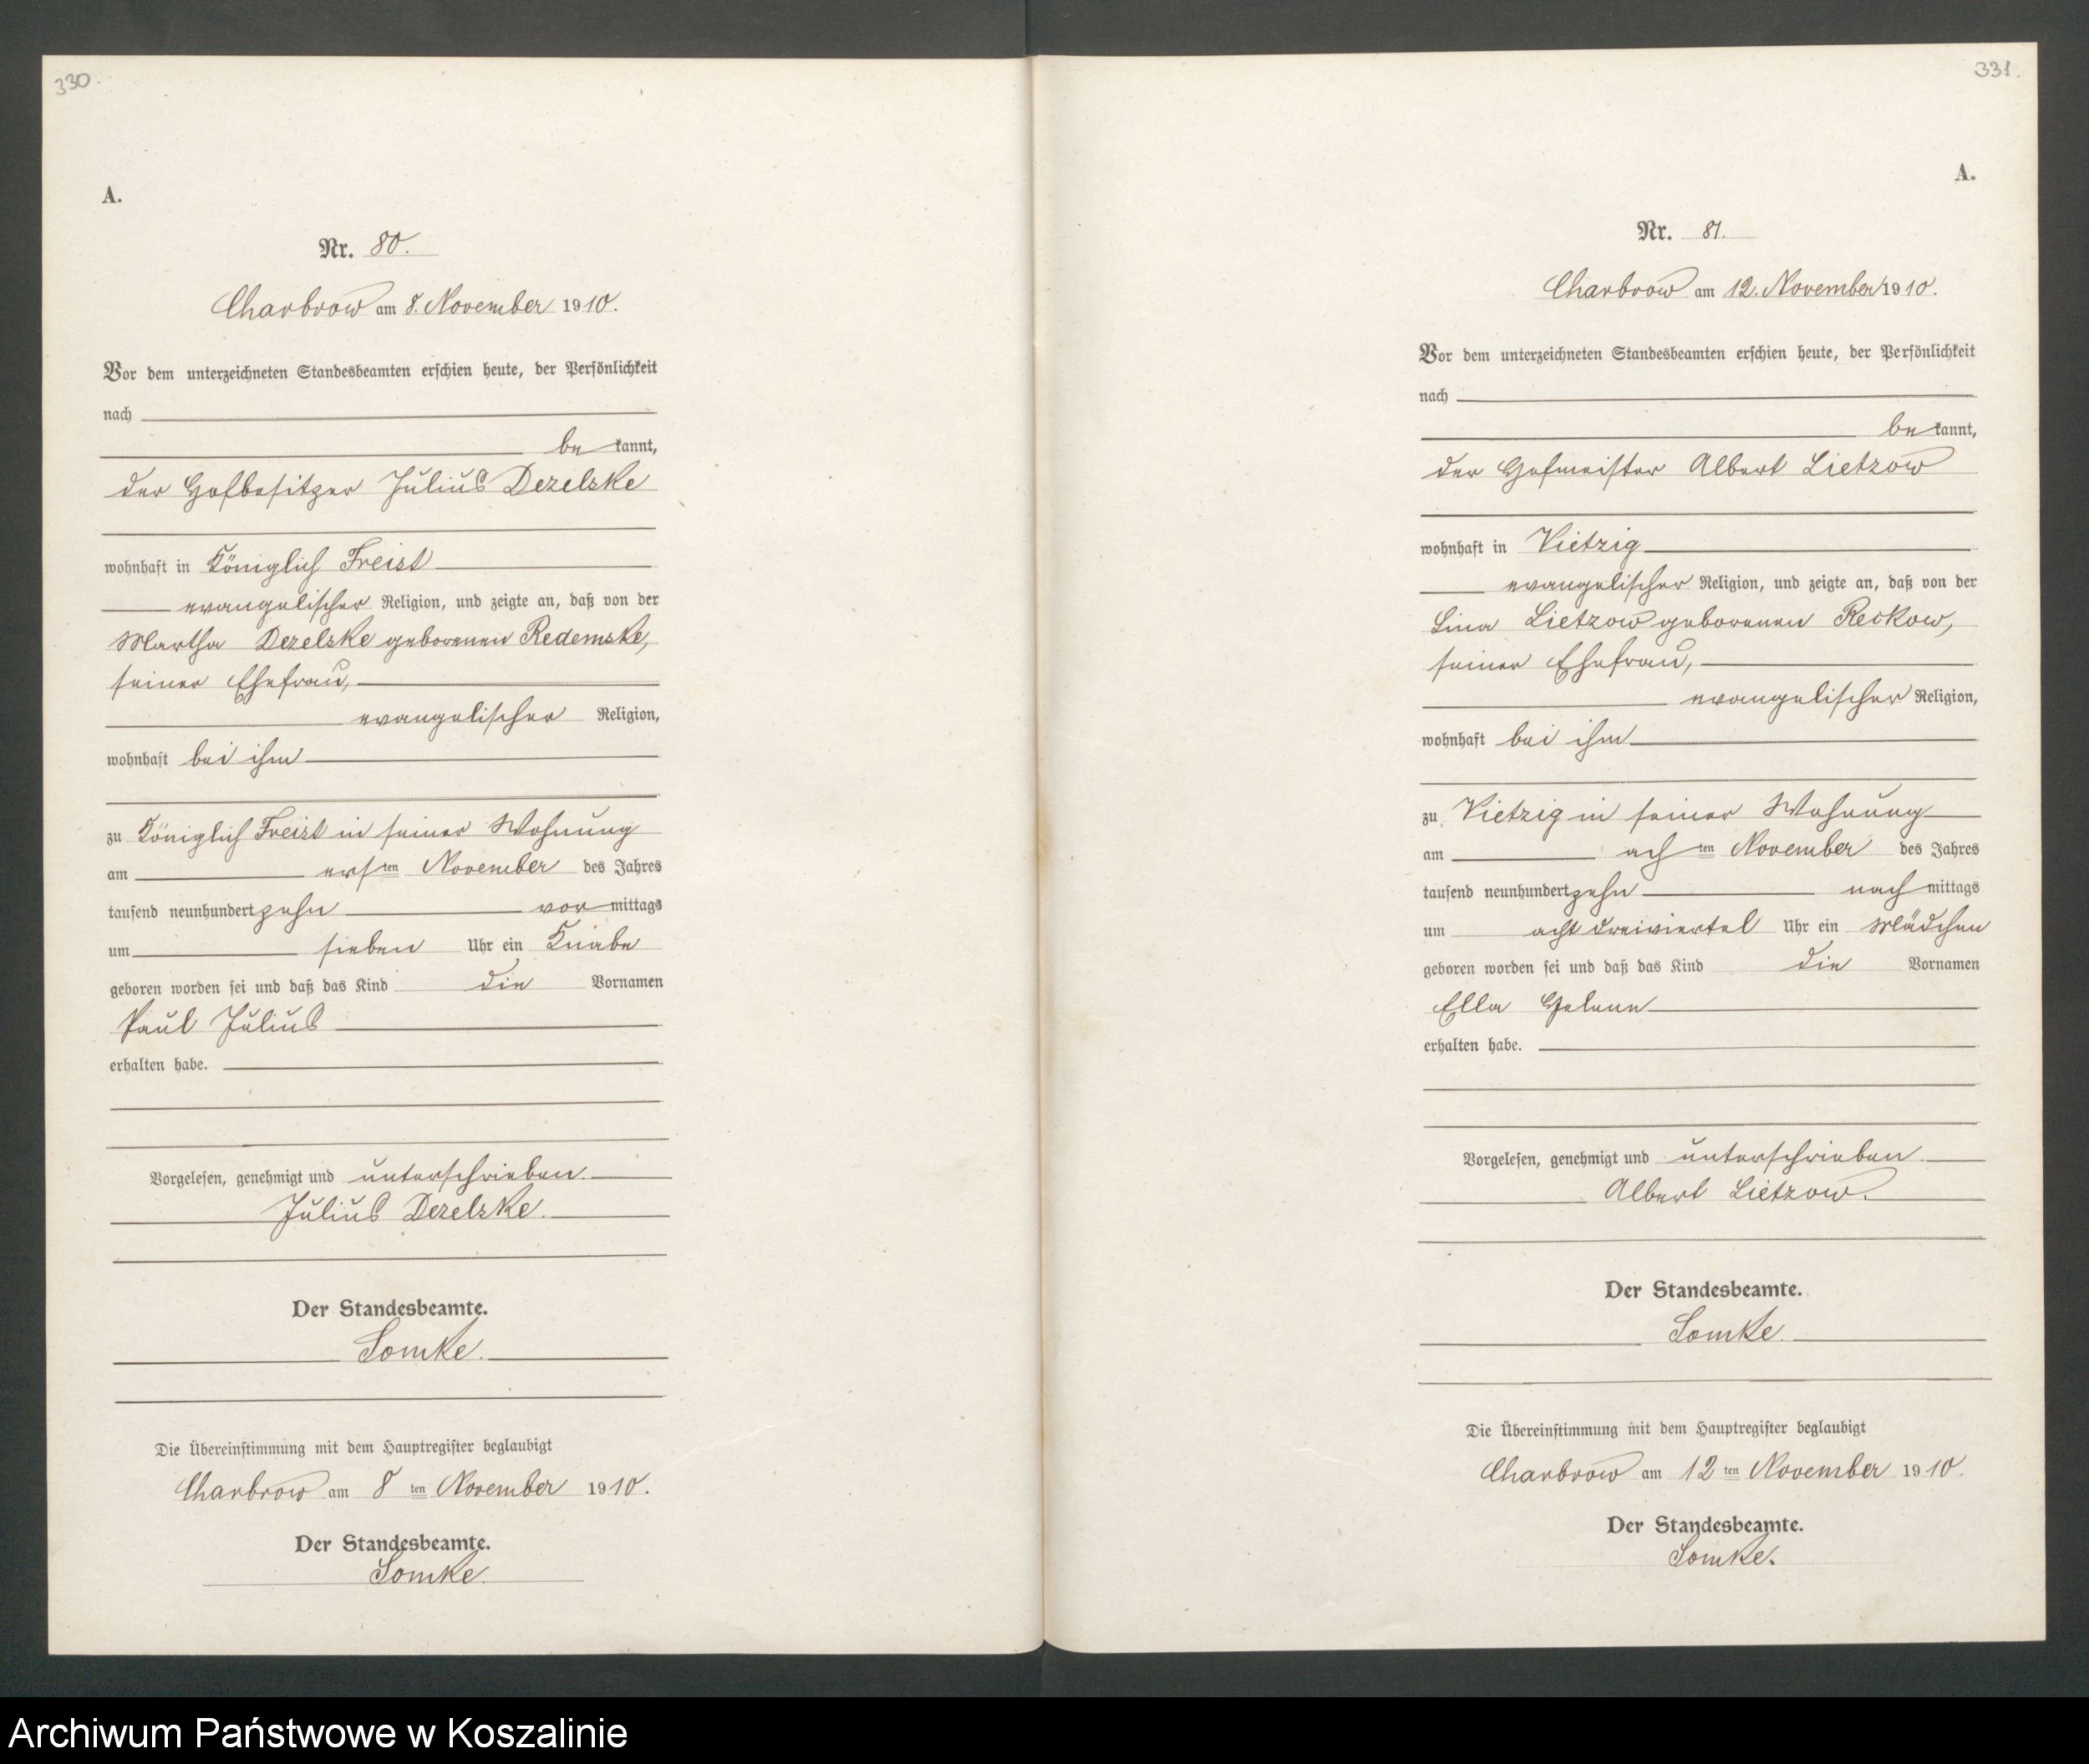 330.
A.
Nr. 80.
Charbrow am 8. November 1910.
Vor dem unterzeichneten Standesbeamten erschien heute, der Persönlichkeit
nach
be kannt,
der Hofbesitzer Julius Dezelske
wohnhaft in Königlich Freist
evangelischer Religion, und zeigte an, daß von der
Martha Dezelske geborenen Redemske,
seiner Ehefrau,
evangelischer Religion,
wohnhaft bei ihm
zu Königlich Freist in seiner Wohnung
am ersten November des Jahres
tausend neunhundert zehn vor mittags
um sieben Uhr ein Knabe
geboren worden sei und daß das Kind die Vornamen
Paul Julius
erhalten habe.
Vorgelesen, genehmigt und unterschrieben.
Julius Dezelske.
Der Standesbeamte.
Somke.
Die Übereinstimmung mit dem Hauptregister beglaubigt
Charbrow am 8 ten November 1910.
Der Standesbeamte.
Somke.
331.
A.
Nr. 81.
Charbrow am 12. November 1910.
Vor dem unterzeichneten Standesbeamten erschien heute, der Persönlichkeit
nach
be kannt,
der Hofmeister Albert Lietzow
wohnhaft in Vietzig
evangelischer Religion, und zeigte an, daß von der
Lina Lietzow geborenen Reckow,
seiner Ehefrau,
evangelischer Religion,
wohnhaft bei ihm
zu Vietzig in seiner Wohnung
am achten November des Jahres
tausend neunhundert zehn nach mittags
um acht dreiviertel Uhr ein Mädchen
geboren worden sei und daß das Kind die Vornamen
Ella Helene
erhalten habe.
Vorgelesen, genehmigt und unterschrieben.
Albert Lietzow.
Der Standesbeamte.
Somke.
Die Übereinstimmung mit dem Hauptregister beglaubigt
Charbrow am 12 ten November 1910.
Der Standesbeamte.
Somke.
Archiwum Państwowe w Koszalinie